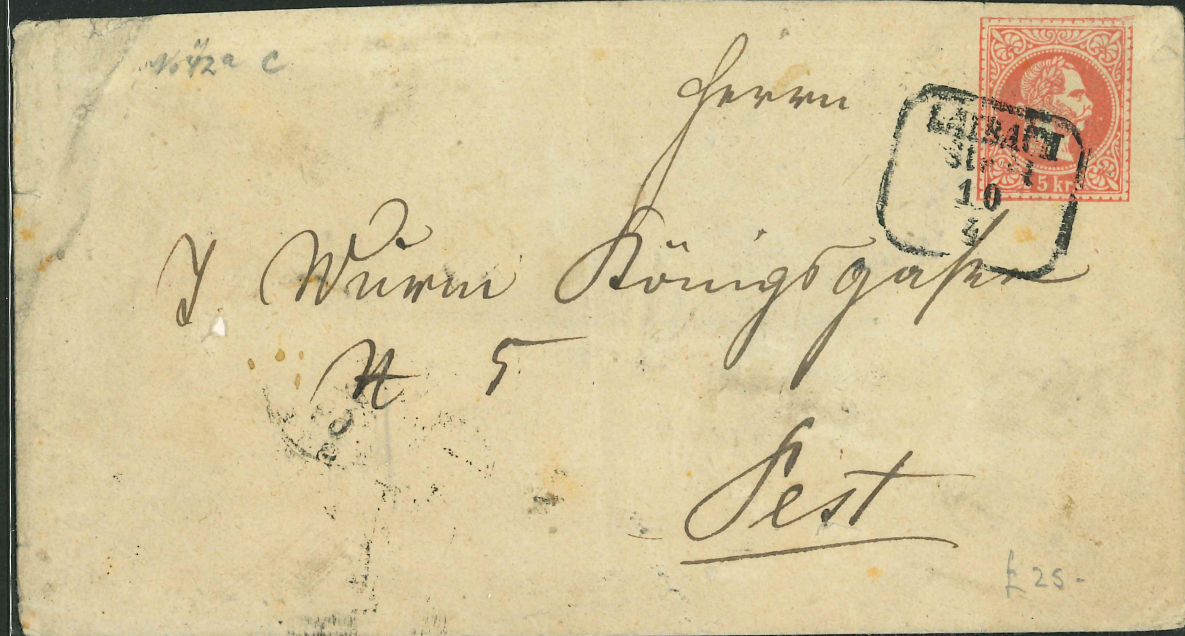 Herrn
LAIBACH
Stadt
10
4
5 kr
J Wurm Königsgasse
N 5
Pest
£ 25-